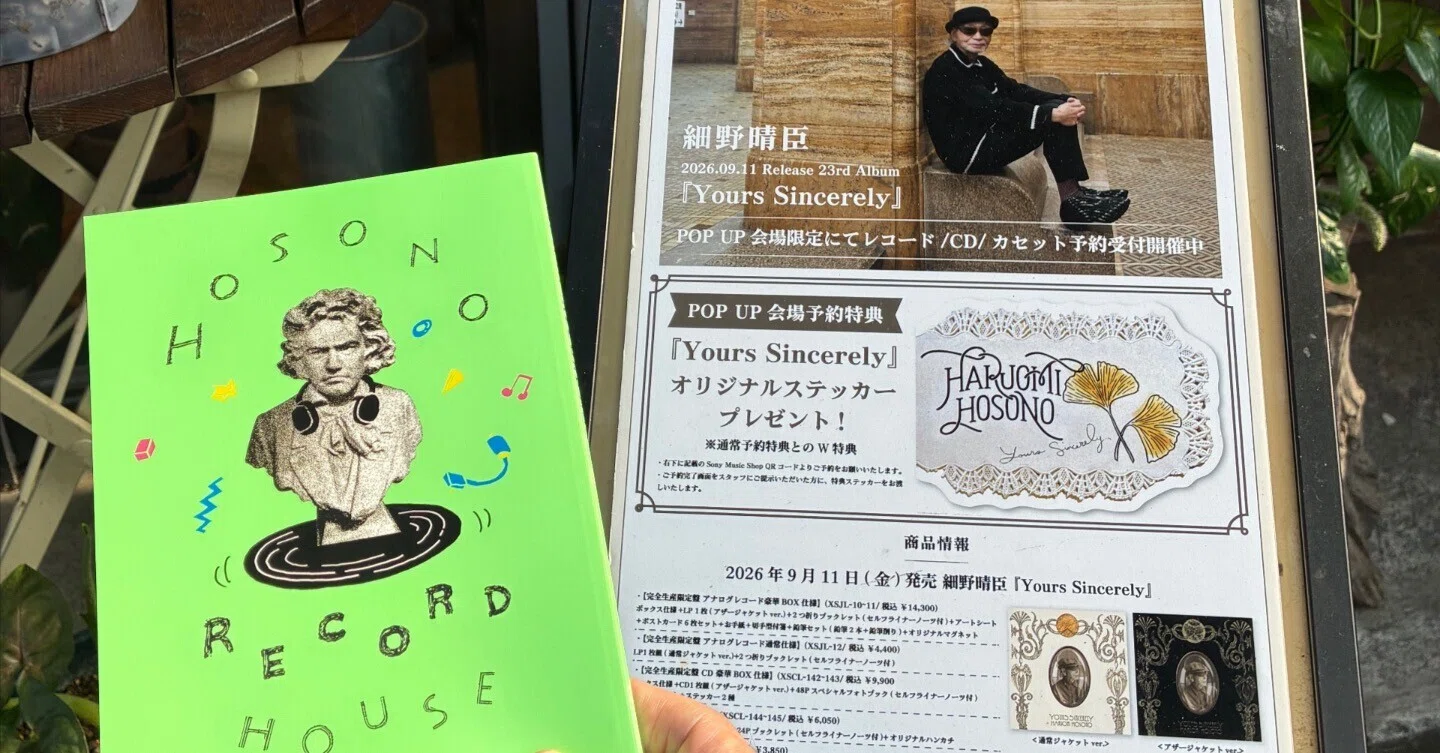 HOSONO
RECORD
HOUSE
細野晴臣
2026.09.11 Release 23rd Album
『Yours Sincerely』
POP UP 会場限定にてレコード/CD/カセット予約受付開催中
POP UP 会場予約特典
『Yours Sincerely』
オリジナルステッカー
プレゼント！
※通常予約特典とのW特典
・右下に記載の Sony Music Shop QR コードよりご予約をお願いいたします。
・ご予約完了画面をスタッフにご提示いただいた方に、特典ステッカーをお渡
しいたします。
HARUOMI
HOSONO
Yours Sincerely
商品情報
2026年9月11日(金)発売 細野晴臣『Yours Sincerely』
・【完全生産限定盤 アナログレコード豪華BOX仕様】(XSJL-10~11/税込 ￥14,300)
ボックス仕様+LP1枚(アザージャケットver.)+2つ折りブックレット(セルフライナーノーツ付)+アートシート
+ポストカード6枚セット+お手紙+切手型付箋+鉛筆セット(鉛筆2本+鉛筆削り)+オリジナルマグネット
・【完全生産限定盤 アナログレコード通常仕様】(XSJL-12/税込 ￥4,400)
LP1枚組(通常ジャケットver.)+2つ折りブックレット(セルフライナーノーツ付)
・【完全生産限定盤 CD 豪華BOX仕様】(XSCL-142~143/税込 ￥9,900
クス仕様+CD1枚組(アザージャケットver.)+48Pスペシャルフォトブック(セルフライナーノーツ付)
+ステッカー2種
XSCL-144~145/税込 ￥6,050)
24Pブックレット(セルフライナーノーツ付)+オリジナルハンカチ
￥3,850)
YOURS SINCERELY
HARUOMI HOSONO
<通常ジャケットver.>
<アザージャケットver.>